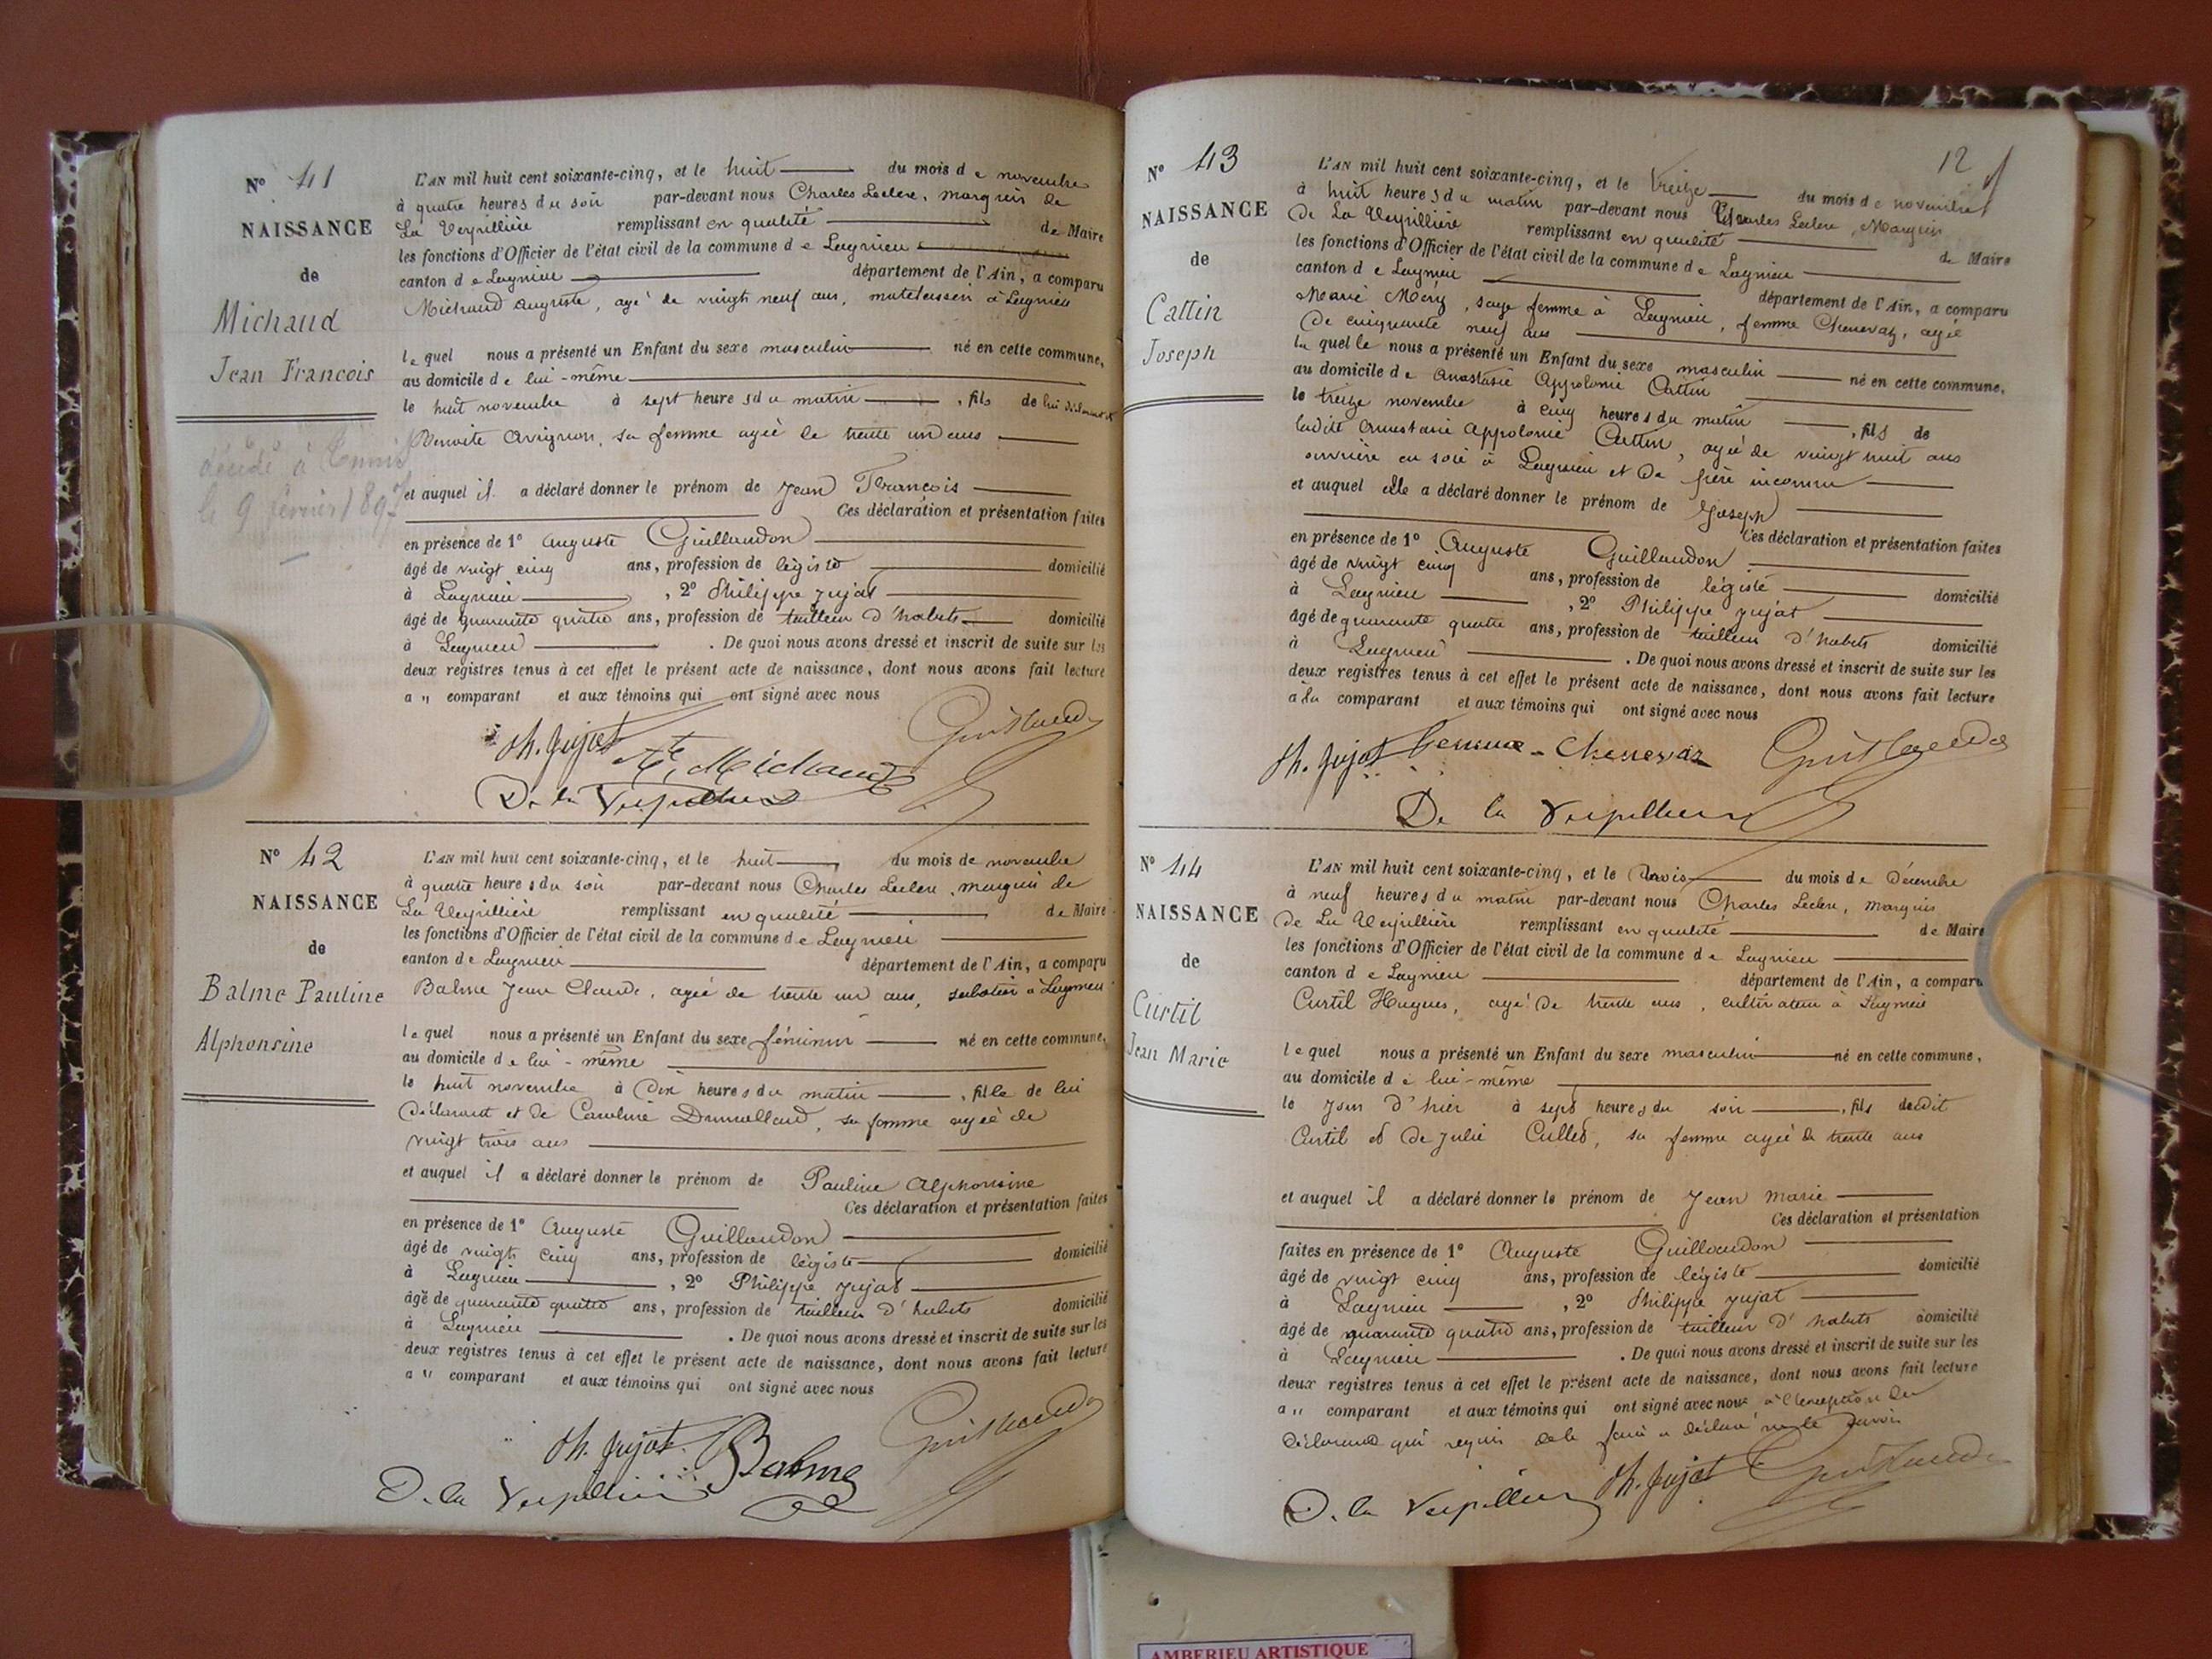 N° 41
NAISSANCE
de
Michaud
Jean Francois
décédé à
le 9 février 1897
L'AN mil huit cent soixante-cinq, et le huit du mois de novembre
à quatre heures du soir par-devant nous Charles Leclerc, marquis de
La Verpillière remplissant en qualité de Maire
les fonctions d'Officier de l'état civil de la commune de Lagnieu
canton de Lagnieu département de l'Ain, a comparu
Michaud Auguste, agé de vingt neuf ans, matelassier à Lagnieu
lequel nous a présenté un Enfant du sexe masculin né en cette commune,
au domicile de lui-même
le huit novembre à sept heures du matin, fils de lui déclarant et
Benoite Avignon, sa femme agée de trente un ans
et auquel il a déclaré donner le prénom de Jean Francois
Ces déclaration et présentation faites
en présence de 1° Auguste Guillaudon
âgé de vingt cinq ans, profession de légiste domicilié
à Lagnieu, 2° Philippe Jujat
âgé de quarante quatre ans, profession de tailleur d'habits domicilié
à Lagnieu. De quoi nous avons dressé et inscrit de suite sur les
deux registres tenus à cet effet le présent acte de naissance, dont nous avons fait lecture
a " comparant et aux témoins qui ont signé avec nous
Ph. Jujat Michaud
De la Verpillière
N° 42
NAISSANCE
de
Balme Pauline
Alphonsine
L'AN mil huit cent soixante-cinq, et le huit du mois de novembre
à quatre heures du soir par-devant nous Charles Leclerc, marquis de
La Verpillière remplissant en qualité de Maire
les fonctions d'Officier de l'état civil de la commune de Lagnieu
canton de Lagnieu département de l'Ain, a comparu
Balme Jean Claude, agé de trente un ans, sabotier à Lagnieu
lequel nous a présenté un Enfant du sexe féminin né en cette commune,
au domicile de lui-même
le huit novembre à dix heures du matin, fille de lui
déclarant et de Caroline, sa femme agée de
vingt trois ans
et auquel il a déclaré donner le prénom de Pauline Alphonsine
Ces déclaration et présentation faites
en présence de 1° Auguste Guillaudon
âgé de vingt cinq ans, profession de légiste domicilié
à Lagnieu, 2° Philippe Jujat
âgé de quarante quatre ans, profession de tailleur d'habits domicilié
à Lagnieu. De quoi nous avons dressé et inscrit de suite sur les
deux registres tenus à cet effet le présent acte de naissance, dont nous avons fait lecture
a " comparant et aux témoins qui ont signé avec nous
Ph. Jujat Balme
D. la Verpillière
12
N° 43
NAISSANCE
de
Cattin
Joseph
L'AN mil huit cent soixante-cinq, et le treize du mois de novembre
à huit heures du matin par-devant nous Charles Leclerc, Marquis
De La Verpillière remplissant en qualité de Maire
les fonctions d'Officier de l'état civil de la commune de Lagnieu
canton de Lagnieu département de l'Ain, a comparu
Marie Méry, sage femme à Lagnieu, femme Chenevaz, agée
de cinquante neuf ans
laquelle nous a présenté un Enfant du sexe masculin né en cette commune,
au domicile de Anastasie Appolonie Cattin
le treize novembre à cinq heures du matin, fils de
ladite Anastasie Appolonie Cattin, agée de vingt huit ans
ouvrière en soie à Lagnieu et de père inconnu
et auquel elle a déclaré donner le prénom de Joseph
Ces déclaration et présentation faites
en présence de 1° Auguste Guillaudon
âgé de vingt cinq ans, profession de légiste domicilié
à Lagnieu, 2° Philippe Jujat
âgé de quarante quatre ans, profession de tailleur d'habits domicilié
à Lagnieu. De quoi nous avons dressé et inscrit de suite sur les
deux registres tenus à cet effet le présent acte de naissance, dont nous avons fait lecture
a la comparant et aux témoins qui ont signé avec nous
Ph. Jujat femme-Chenevaz
De la Verpillière
N° 44
NAISSANCE
de
Curtil
Jean Marie
L'AN mil huit cent soixante-cinq, et le trois du mois de décembre
à neuf heures du matin par-devant nous Charles Leclerc, marquis
de La Verpillière remplissant en qualité de Maire
les fonctions d'Officier de l'état civil de la commune de Lagnieu
canton de Lagnieu département de l'Ain, a comparu
Curtil Hugues, agé de trente ans, cultivateur à Lagnieu
lequel nous a présenté un Enfant du sexe masculin né en cette commune,
au domicile de lui-même
le jour d'hier à sept heures du soir, fils dudit
Curtil et de Julie Cullet, sa femme agée de trente ans
et auquel il a déclaré donner le prénom de Jean Marie
Ces déclaration et présentation
faites en présence de 1° Auguste Guillaudon
âgé de vingt cinq ans, profession de légiste domicilié
à Lagnieu, 2° Philippe Jujat
âgé de quarante quatre ans, profession de tailleur d'habits domicilié
à Lagnieu. De quoi nous avons dressé et inscrit de suite sur les
deux registres tenus à cet effet le présent acte de naissance, dont nous avons fait lecture
a " comparant et aux témoins qui ont signé avec nous à l'exception du
déclarant qui requis de le faire a déclaré ne le savoir
D. la Verpillière Ph. Jujat
AMBERIEU ARTISTIQUE